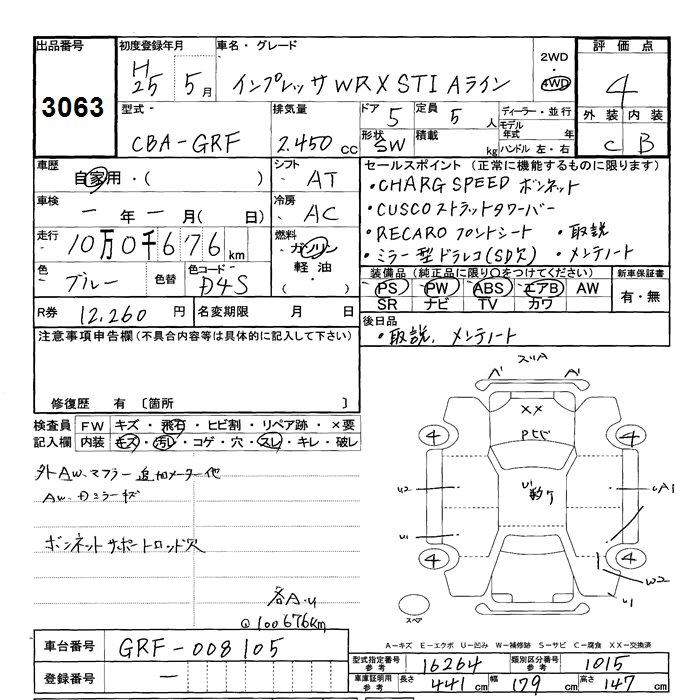 出品番号 初度登録年月 車名・グレード 2WD 評価点
3063 H25 5月 インプレッサWRX STI Aライン 4WD 4
型式 排気量 ドア 定員 ディーラー・並行 外装 内装
CBA-GRF 2.450cc 5 5人 モデル年式 年 C B
形状 積載 ハンドル 左・右
SW kg
車歴 シフト セールスポイント (正常に機能するものに限ります)
自家用・( ) AT ・CHARG SPEED ボンネット
車検 冷房 ・CUSCOストラットタワーバー
一年一月(日) AC ・RECARO フロントシート ・取説
走行 燃料 ・ミラー型ドラレコ(SD欠) ・メンテノート
10万0千676km ガソリン 軽油・( )
色 色替 色コード 装備品 (純正品に限り○をつけてください) 新車保証書
ブルー D4S PS PW ABS エアB AW 有・無
SR ナビ TV カワ
R券 12,260円 名変期限 月 日 後日品
注意事項申告欄(不具合内容等は具体的に記入して下さい) ・取説、メンテノート
修復歴 有 〔箇所 〕
検査員記入欄 FW キズ・飛石・ヒビ割・リペア跡・×要
内装 キズ・汚レ・コゲ・穴・スレ・キレ・破レ
外AW、マフラー 追加メーター他
AW、ミラーキズ
ボンネットサポートロッド欠
各A・U
@100676km
スリA
XX
4 4
U2 U1 A1
U1
4 4
W2
U1
スペア
A-キズ E-エクボ U-凹み W-補修跡 S-サビ C-腐食 XX-交換済
車台番号 GRF-008105
登録番号 一
型式指定番号参考 16264 類別区分番号参考 1015
車庫証明用参考 長さ 441cm 幅 179cm 高さ 147cm